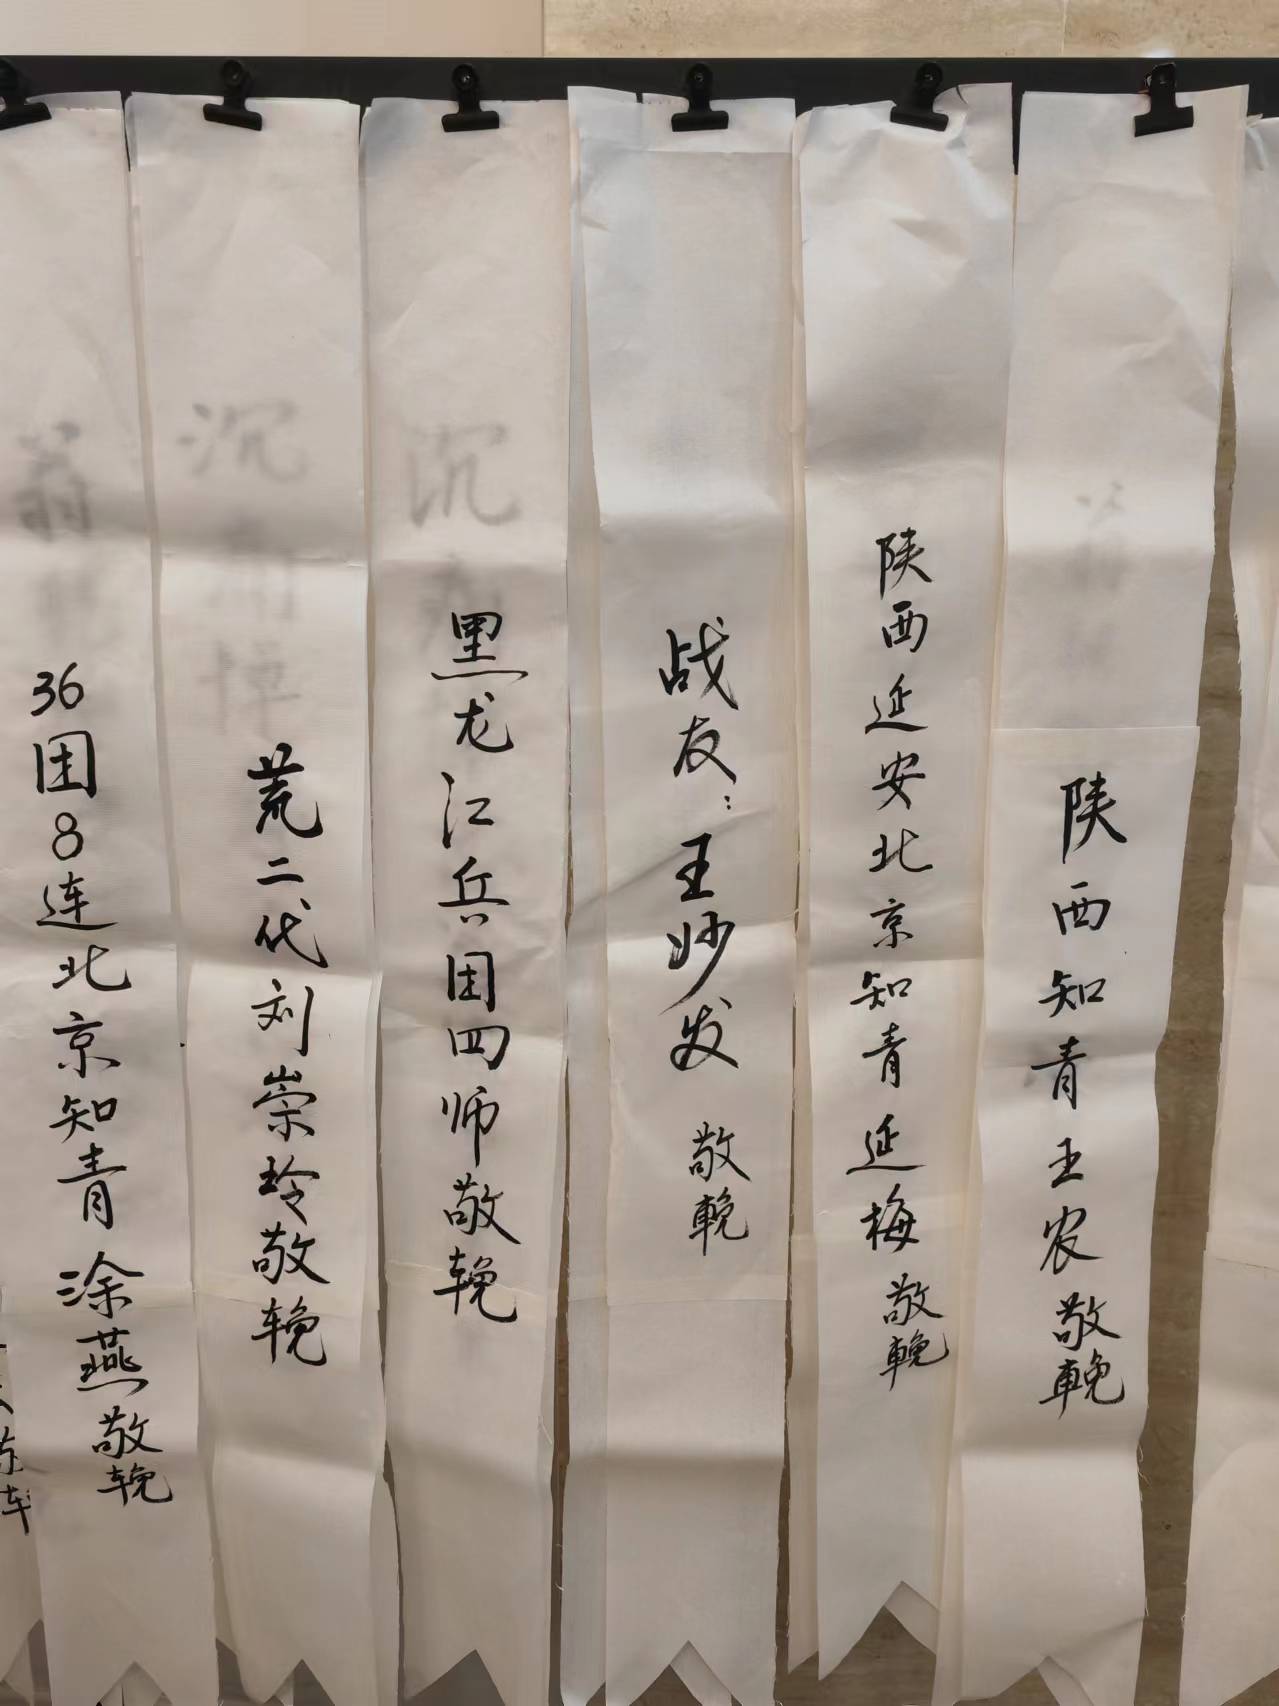 陕西知青王农敬輓
陕西延安北京知青延梅敬輓
战友：王妙发 敬輓
黑龙江兵团四师敬輓
荒二代刘崇玲敬輓
36团8连北京知青涂燕敬輓
沉
沉